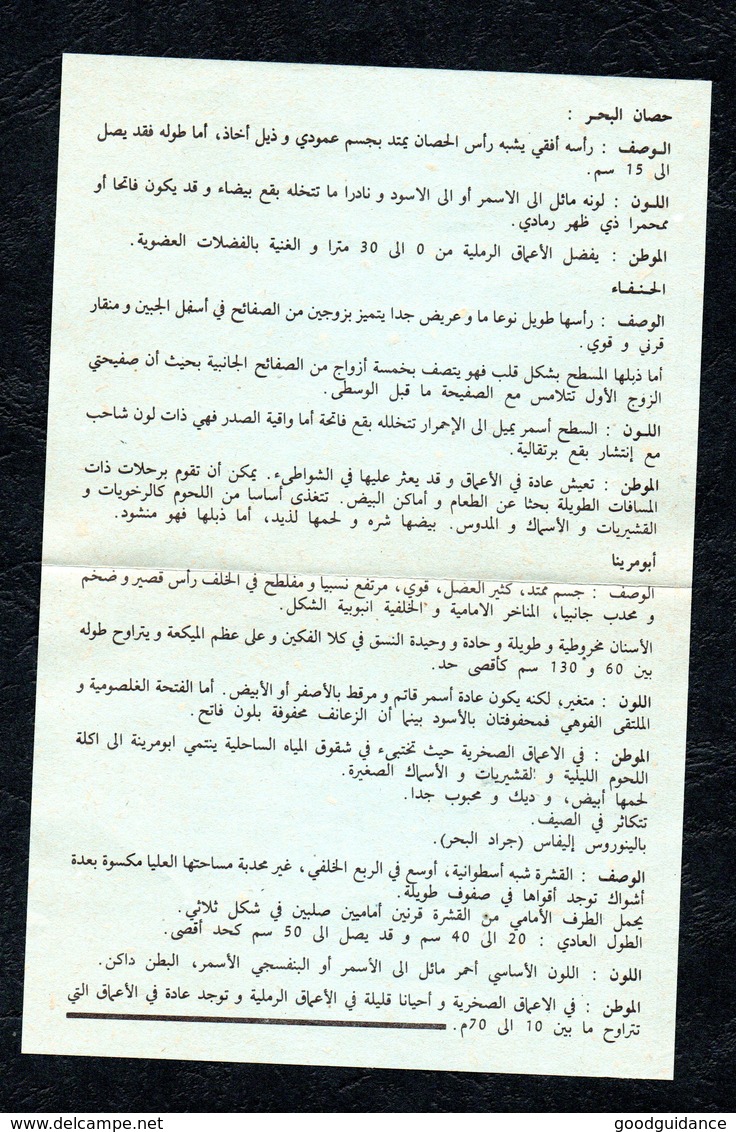 حصان البحر :
الوصف : رأسه أفقي يشبه رأس الحصان يمتد بجسم عمودي و ذيل أخاذ، أما طوله فقد يصل
الى 15 سم.
اللون : لونه مائل الى الاسمر أو الى الاسود و نادرا ما تتخله بقع بيضاء و قد يكون فاتحا أو
محمرا ذي ظهر رمادي.
الموطن : يفضل الأعماق الرملية من 0 الى 30 مترا و الغنية بالفضلات العضوية.
الحنفاء
الوصف : رأسها طويل نوعا ما و عريض جدا يتميز بزوجين من الصفائح في أسفل الجبين و منقار
قرني و قوي.
أما ذبلها المسطح بشكل قلب فهو يتصف بخمسة أزواج من الصفائح الجانبية بحيث أن صفيحتي
الزوج الأول تتلامس مع الصفيحة ما قبل الوسطى.
اللون : السطح أسمر يميل الى الإحمرار تتخلله بقع فاتحة أما واقية الصدر فهي ذات لون شاحب
مع إنتشار بقع برتقالية.
الموطن : تعيش عادة في الأعماق و قد يعثر عليها في الشواطىء. يمكن أن تقوم برحلات ذات
المسافات الطويلة بحثا عن الطعام و أماكن البيض. تتغذى أساسا من اللحوم كالرخويات و
القشيريات و الأسماك و المدوس. بيضها شره و لحمها لذيد، أما ذبلها فهو منشود.
أبومرينا
الوصف : جسم ممتد، كثير العضل، قوي، مرتفع نسبيا و مفلطح في الخلف رأس قصير و ضخم
و محدب جانبيا، المناخر الامامية و الخلفية انبوبية الشكل.
الأسنان مخروطية و طويلة و حادة و وحيدة النسق في كلا الفكين و على عظم الميكعة و يتراوح طوله
بين 60 و 130 سم كأقصى حد.
اللون : متغير، لكنه يكون عادة أسمر قاتم و مرقط بالأصفر أو الأبيض. أما الفتحة الغلصومية و
الملتقى الفوهي فمحفوفتان بالأسود بينما أن الزعانف محفوفة بلون فاتح.
الموطن : في الاعماق الصخرية حيث تختبىء في شقوق المياه الساحلية ينتمي ابومرينة الى اكلة
اللحوم الليلية و القشيريات و الأسماك الصغيرة.
لحمها أبيض، و ديك و محبوب جدا.
تتكاثر في الصيف.
بالينوروس إليفاس (جراد البحر).
الوصف : القشرة شبه أسطوانية، أوسع في الربع الخلفي، غير محدبة مساحتها العليا مكسوة بعدة
أشواك توجد أقواها في صفوف طويلة.
يحمل الطرف الأمامي من القشرة قرنين أماميين صلبين في شكل ثلاثي.
الطول العادي : 20 الى 40 سم و قد يصل الى 50 سم كحد أقصى.
اللون : اللون الأساسي أحمر مائل الى الأسمر أو البنفسجي الأسمر، البطن داكن.
الموطن : في الاعماق الصخرية و أحيانا قليلة في الأعماق الرملية و توجد عادة في الأعماق التي
تتراوح ما بين 10 الى 70م.
goodguidance